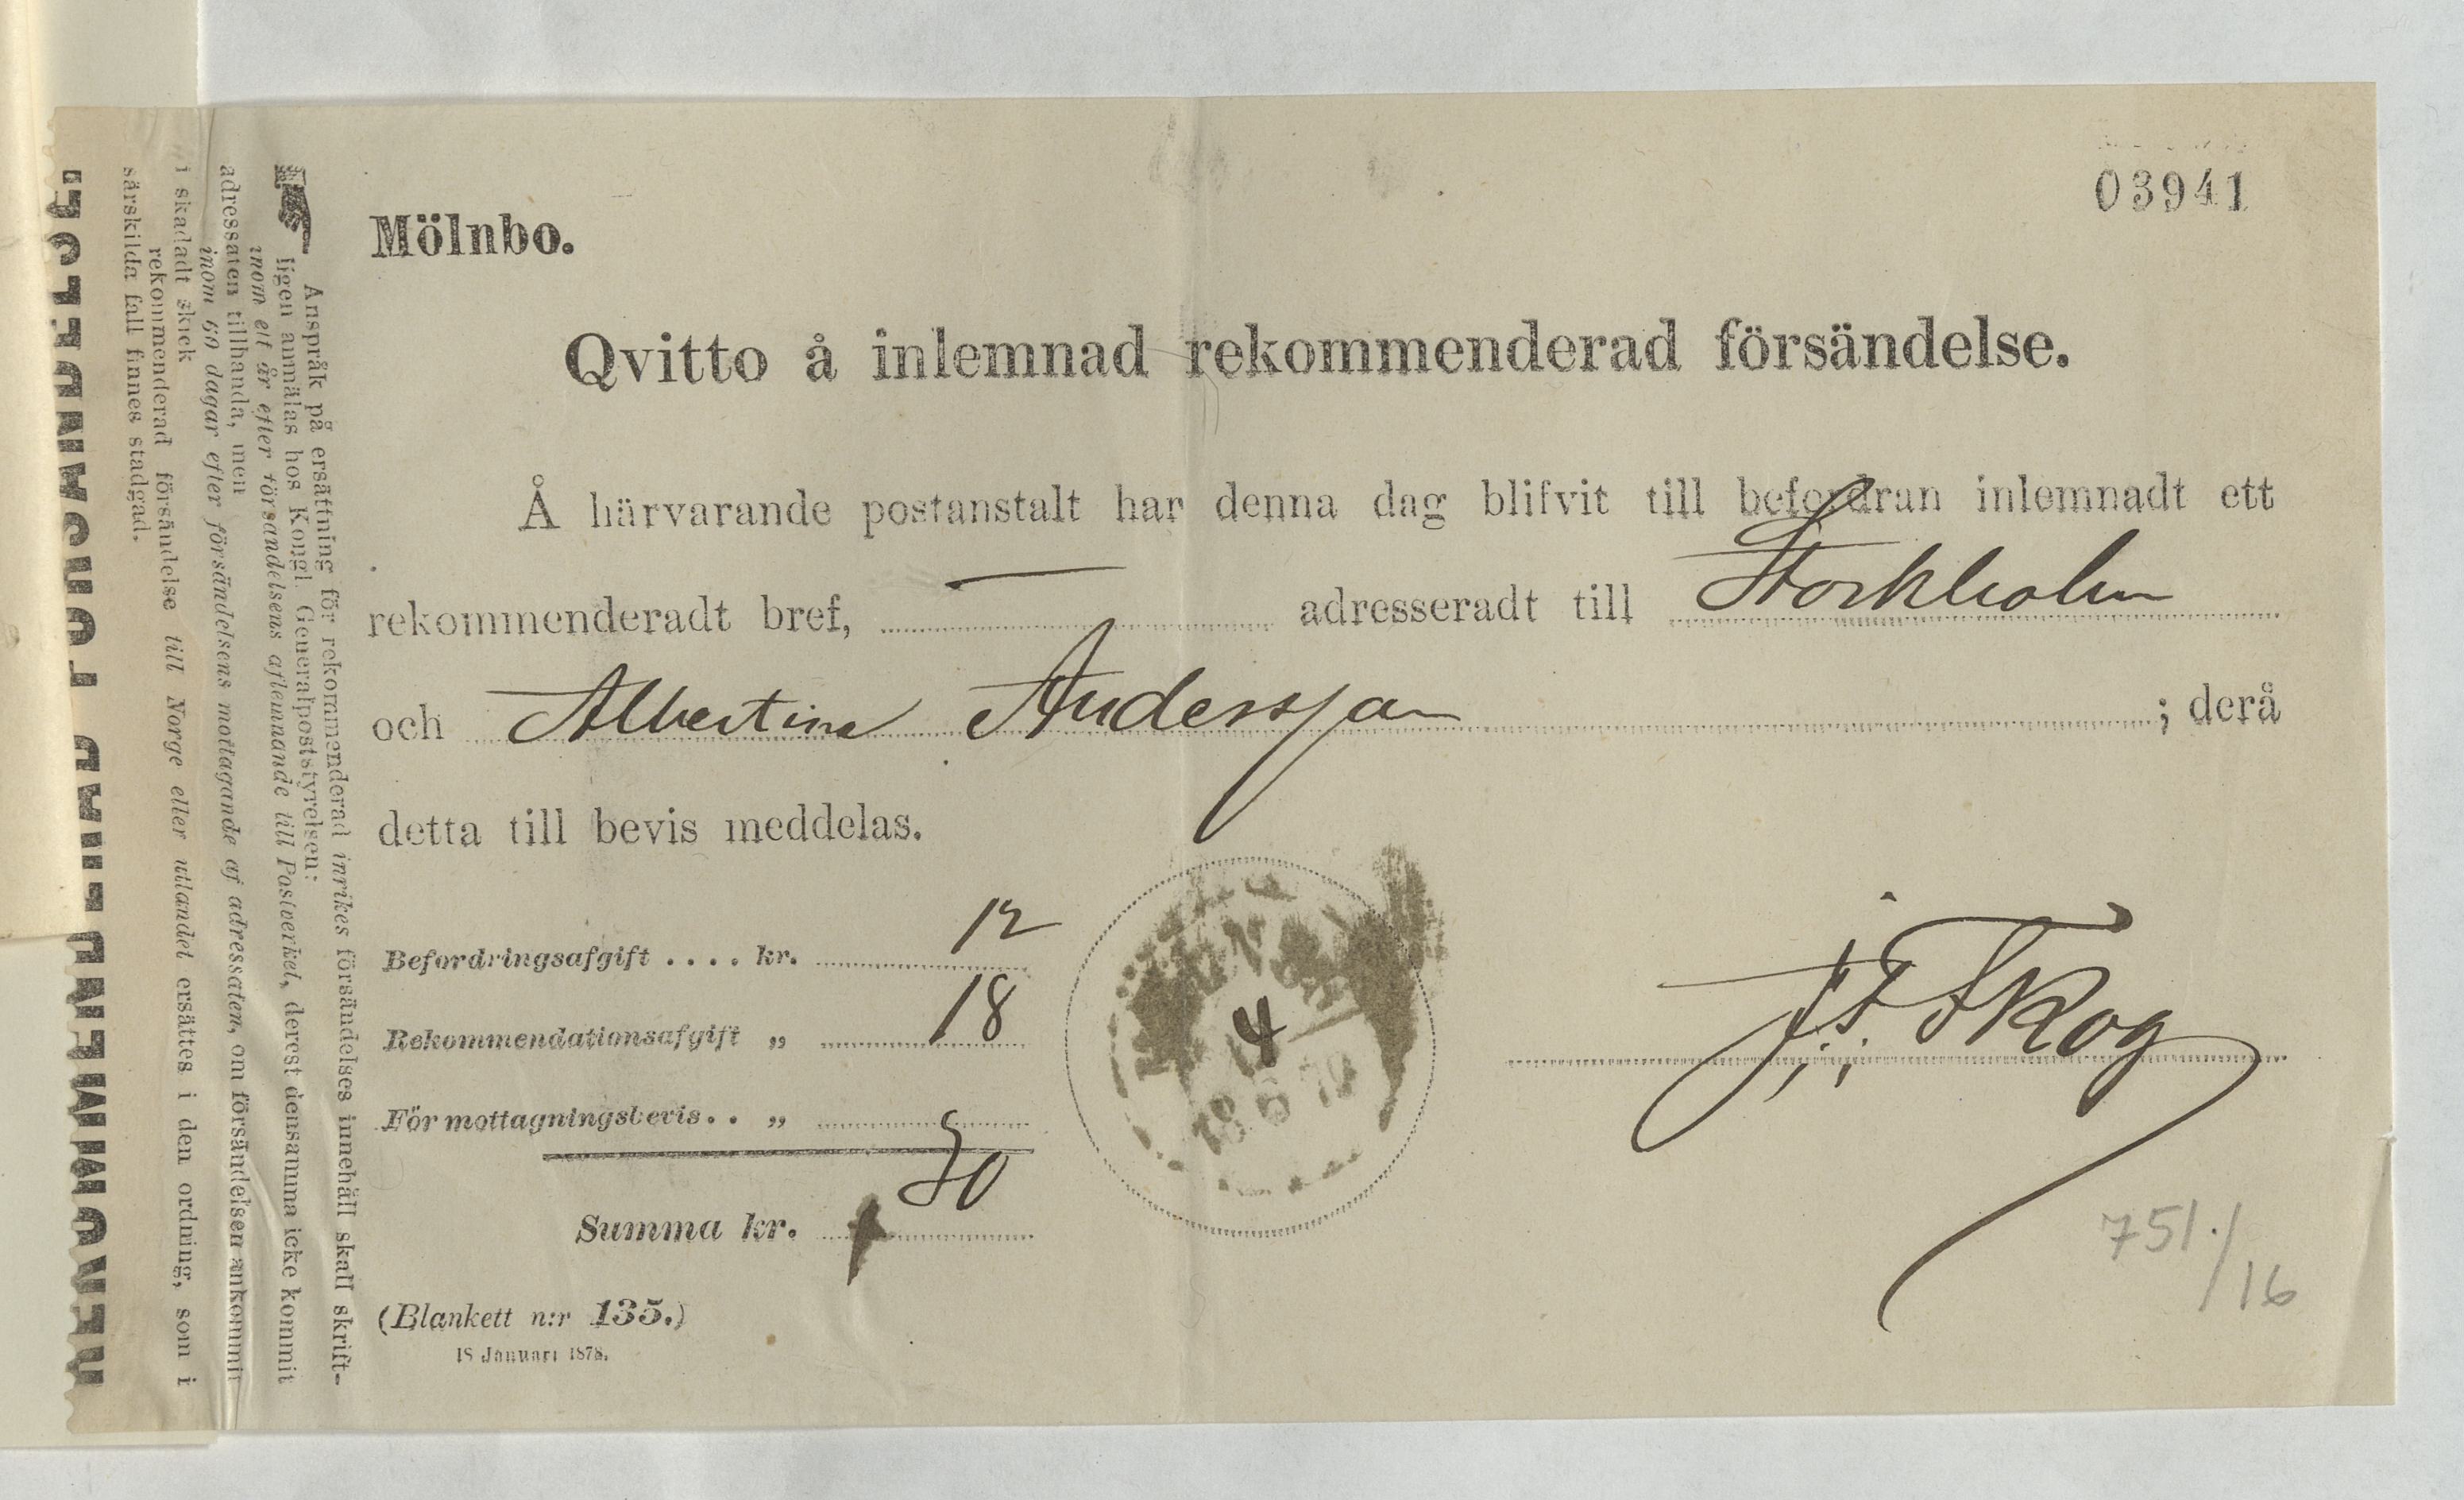 03941
Mölnbo.
Qvitto å inlemnad rekommenderad försändelse.
Å härvarande postanstalt har denna dag blifvit till befordran inlemnadt ett
rekommenderadt bref, adresseradt till Stockholm
och Albertina Andersson ; derå
detta till bevis meddelas.
Befordringsafgift . . . . kr. 12
Rekommendationsafgift „ 18
För mottagningsbevis . . „
Summa kr. 30
4
J. F. Skog
(Blankett n:r 135.)
18 Januari 1878.
751./16
Anspråk på ersättning för rekommenderad inrikes försändelses innehåll skall skrift-
ligen anmälas hos Kongl. Generalpoststyrelsen:
inom ett år efter försändelsens aflemnande till Postverket, derest densamma icke kommit
adressaten tillhanda, men
inom 60 dagar efter försändelsens mottagande af adressaten, om försändelsen ankommit
i skadadt skick
rekommenderad försändelse till Norge eller utlandet ersättes i den ordning, som i
särskilda fall finnes stadgad.